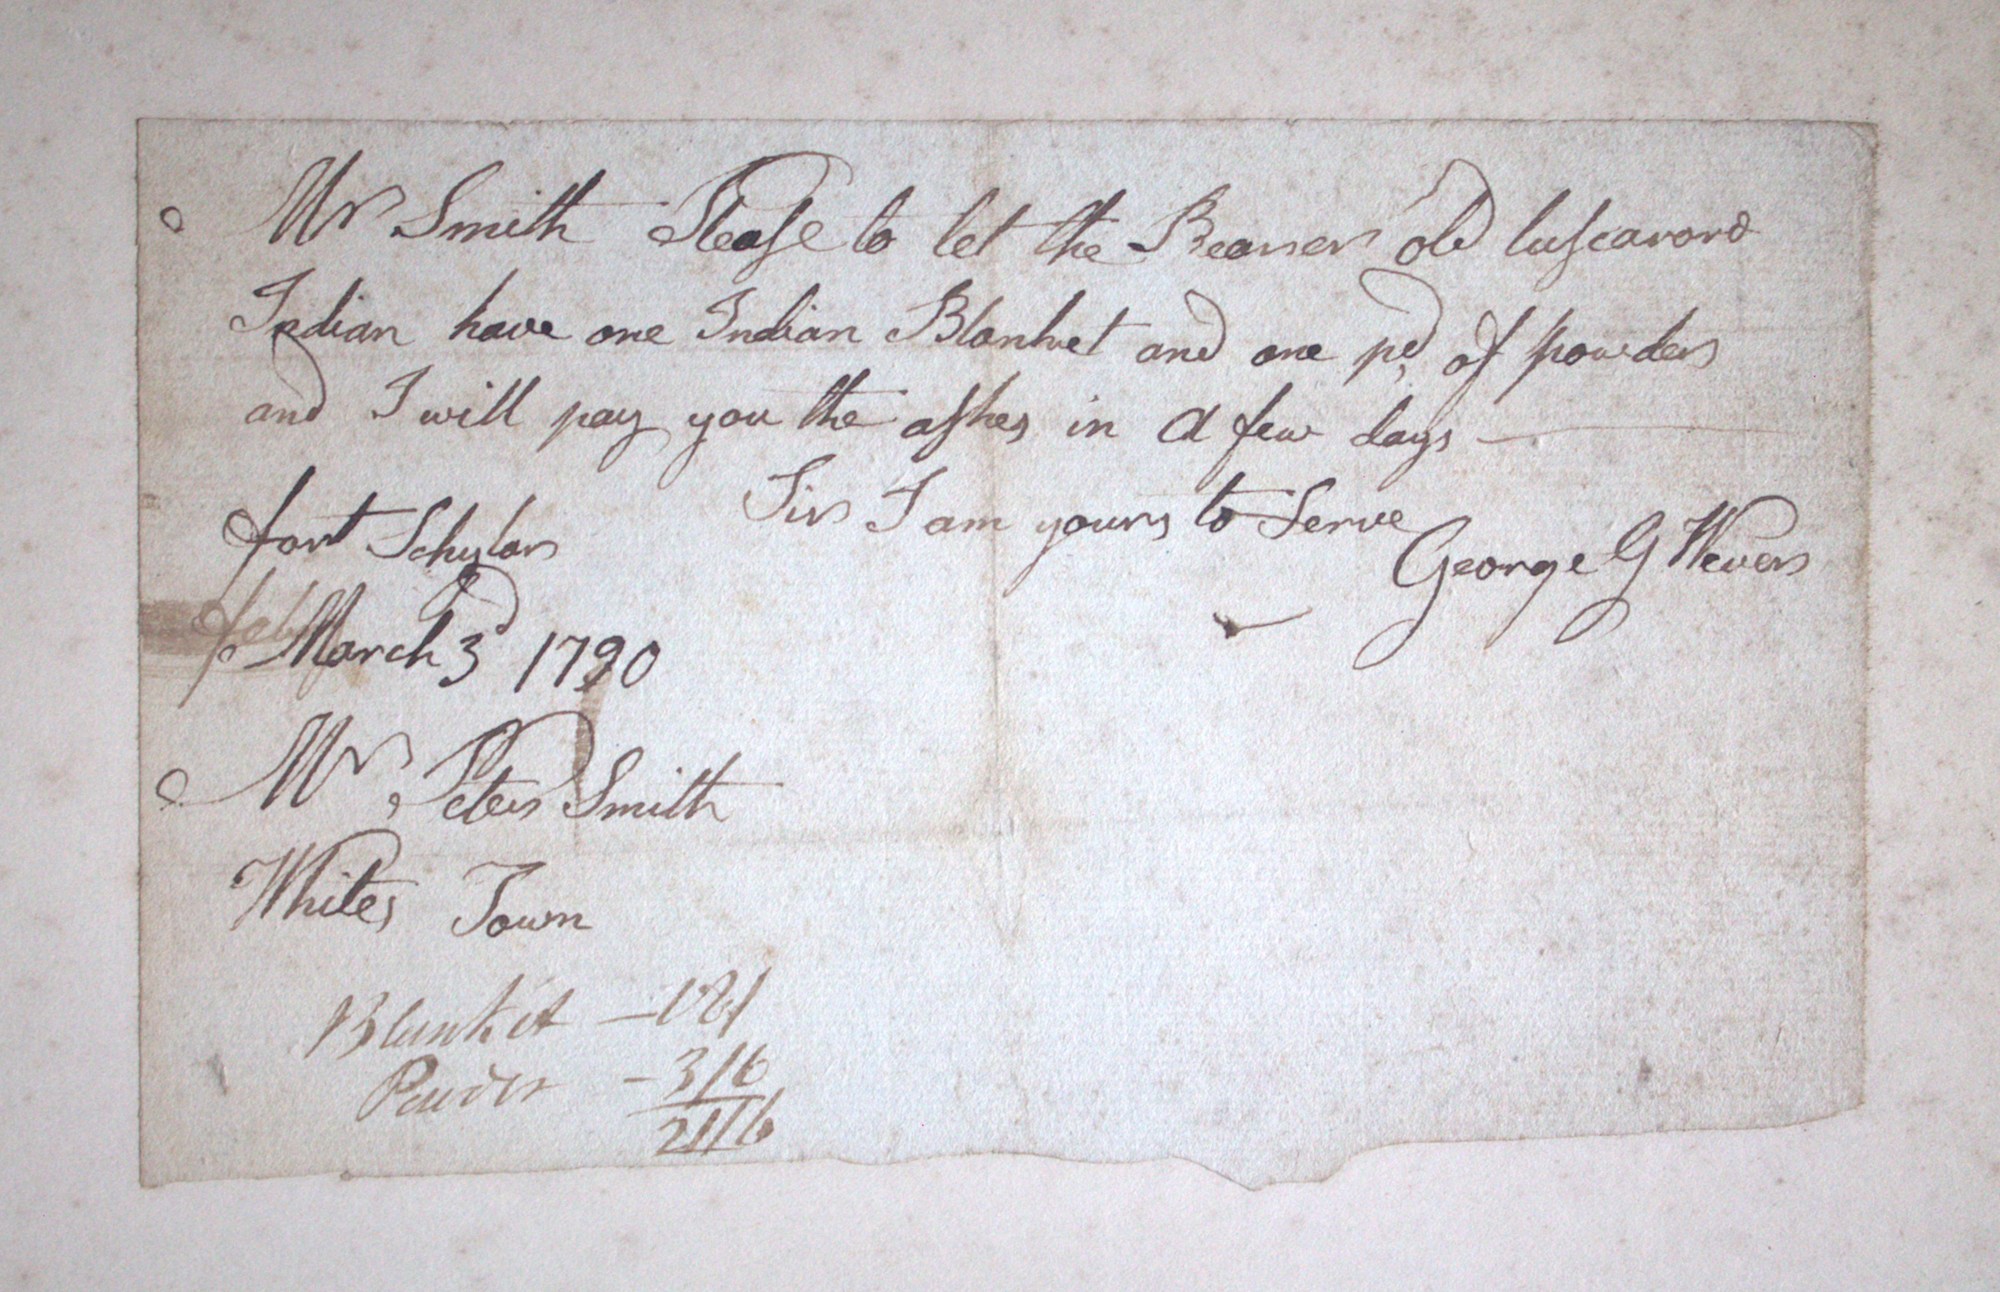 Mr Smith Please to let the Bearrer old tuscarord
Indian have one Indian Blanket and one pd of powder
and I will pay you the ashes in A few days
Sir I am yours to Serve
George G Wever
fort Schylar
March 3d 1790
Mr Peter Smith
Whites Town
Blanket — 18/
Powder — 3/6
21/6